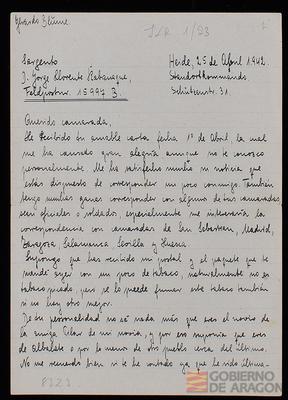 Gerardo Blume.
JLR 1/23
Sargento
D. Jorge Llorente Rabanaque,
Feldpostnr. 15997 B.
Heide, 25 de April 1942.
Standortkommando
Schützenstr. 31.
Querido camarada,
He recibido tu amable carta fecha 1º de Abril, la cual
me ha causado gran alegria aunque no te conozco
personalmente. Me ha satisfecho mucho la noticia que
estas dispuesto de corresponder un poco conmigo. Tambien
tengo muchas ganas corresponder con alguno de tus camaradas
sean oficiales o soldados, especialmente me interesaria la
correspondencia con camaradas de San Sebastian, Madrid,
Zaragoza, Salamanca Sevilla y Huesca.
Supongo que has recibido mi postal y el paquete que te
mandé ayer con un poco de tabaco, naturalmente no es
tabaco picado pero se lo puede fumar este tabaco tambien
si no hay otro mejor.
De tu personalidad no sé nada más que eres el novio de
la amiga Celar de mi novia, y por eso suponia que eres
de Albalate o por lo menos de otro pueblo cerca del último.
No me recuerdo bien si te he contado ya que he sido última-
8323
GOBIERNO
DE ARAGON